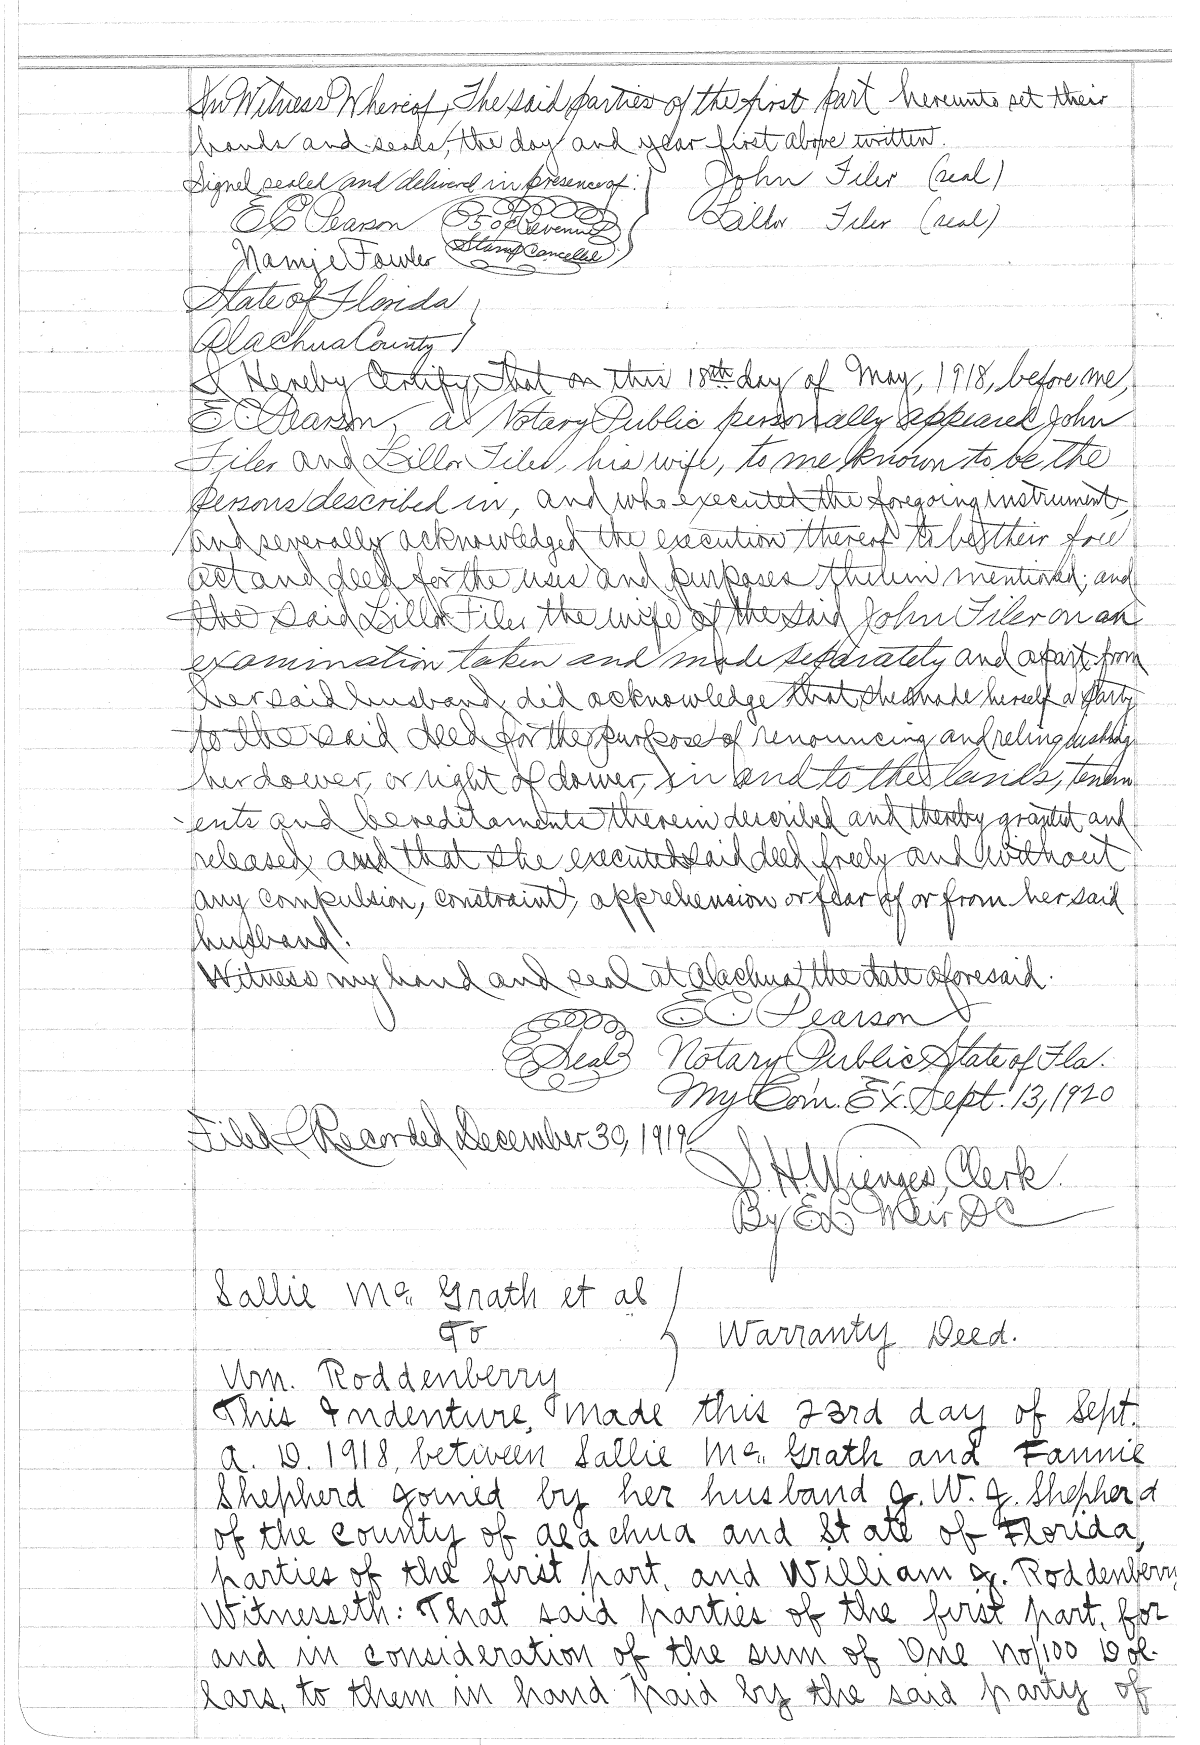 In Witness Whereof, The said parties of the first part hereunto set their
hands and seals, the day and year first above written.
Signel sealed and delivered in presence of: John Filer (seal)
E C Pearson 50¢ Revenue Lillor Filer (seal)
Namie Fowler Stamp Cancelled
State of Florida
Alachua County
I Hereby Certify, That on this 18th day of May, 1918, before me,
E C Pearson, a Notary Public personally appeared John
Filer and Lillor Filer, his wife, to me known to be the
persons described in, and who executed the foregoing instrument,
and severally acknowledged the execution thereof to be their free
act and deed for the uses and purposes therein mentioned; and
the said Lillor Filer the wife of the said John Filer on an
examination taken and made separately and apart from
her said husband, did acknowledge that she made herself a party
to the said deed for the purpose of renouncing and relinquishing
her dower, or right of dower, in and to the lands, tenem
-ents and hereditaments therein described and thereby granted and
released and that she executed said deed freely and without
any compulsion, constraint, apprehension or fear of or from her said
husband.
Witness my hand and seal at Alachua the date aforesaid.
E C Pearson
Seal Notary Public State of Fla.
My Com. Ex. Sept. 13, 1920
Filed & Recorded December 30, 1919
S. H. Wienges, Clerk
By EL Weir DC
Sallie Mc Grath et al
To Warranty Deed.
Wm. Roddenberry
This Indenture, Made this 23rd day of Sept.
A. D. 1918, between Sallie Mc Grath and Fannie
Shepherd joined by her husband J. W. J. Shepherd
of the county of Alachua and State of Florida,
parties of the first part, and William J. Roddenberry
Witnesseth: That said parties of the first part, for
and in consideration of the sum of One no/100 Dol-
lars, to them in hand paid by the said party of